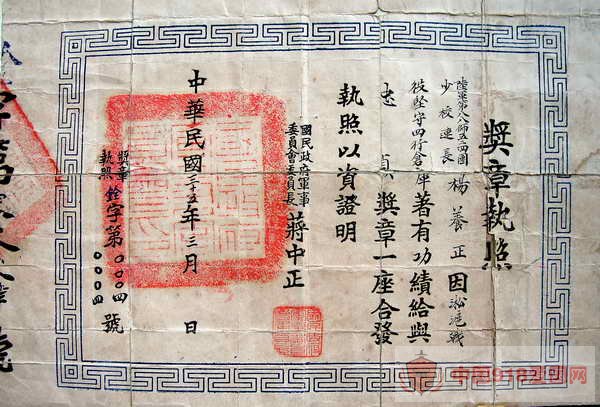 獎章執照
陸軍第八八師五二四團
少校連長楊養正因淞滬戰
役堅守四行倉庫著有功績給與
忠貞獎章一座合發
執照以資證明
國民政府軍事
委員會委員長蔣中正
中華民國三十五年三月 日
獎章
執照銓字第
〇〇〇四
〇〇〇四
號
中国918爱国网